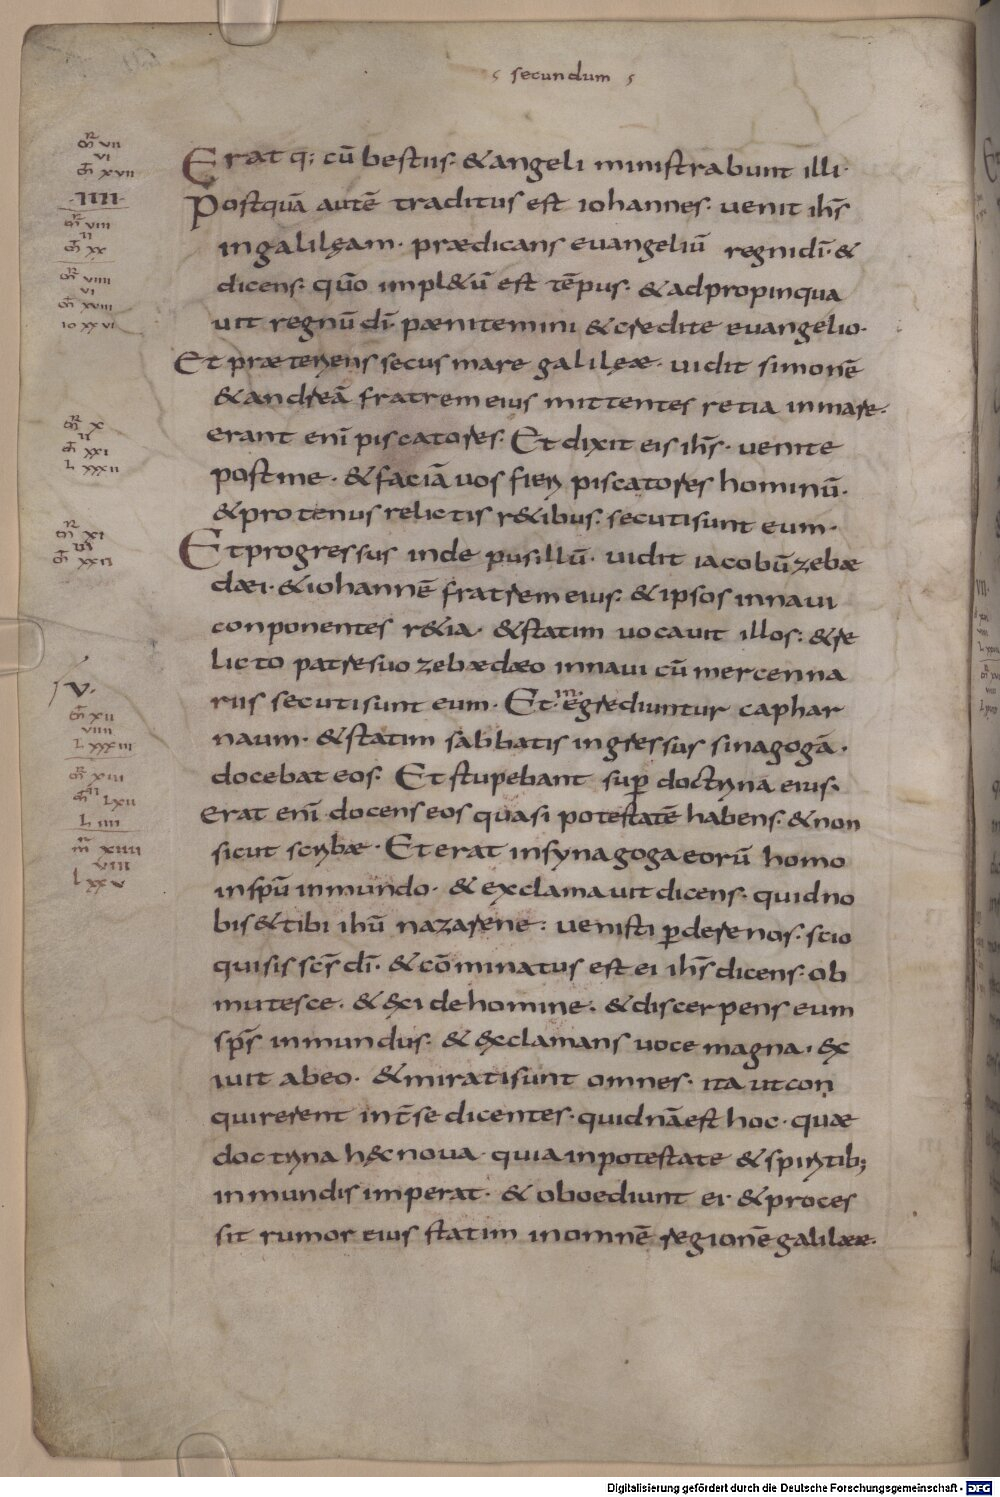 secundum
Erat q; cū bestiis· & angeli ministrabunt illi·
Postquā autē traditus est iohannes· uenit ihs̄
in galilęam· prædicans euangeliū regni dī· &
dicens· qūo impl&ū est tēpus· & adpropinqua
uit regnū dī· pænitemini & credite euangelio·
Et præteriens secus mare galilęæ· uidit simonē
& andreā fratrem eius mittentes retia in mare·
erant enī piscatores· Et dixit eis ihs̄· uenite
post me· & faciā uos fieri piscatores hominū·
& protenus relictis r&ibus· secuti sunt eum·
Et progressus inde pusillū· uidit iacobū zebæ
dæi· & iohannē fratrem eius· & ipsos in naui
conponentes r&ia· & statim uocauit illos: & re
licto patre suo zebædæo in naui cū mercenna
riis secuti sunt eum· Et· egrediuntur caphar
naum· & statim sabbatis ingressus sinagogā·
docebat eos· Et stupebant sup̄ doctrina eius·
erat enī docens eos quasi potestatē habens· & non
sicut scribæ· Et erat in synagoga eorū homo
in spū inmundo· & exclamauit dicens· quid no
bis & tibi ihū nazarene: uenisti ꝑdere nos· scio
qui sis scs̄ dī· & cōminatus est ei ihs̄ dicens· ob
mutesce· & exi de homine· & discerpens eum
sps̄ inmundus· & exclamans uoce magna· ex
iuit ab eo· & mirati sunt omnes· ita ut con
quirerent int̄ se dicentes· quid nā est hoc· quæ
doctrina hęc noua· quia in potestate & spiritib;
inmundis imperat· & oboediunt ei· & proces
sit rumor eius statim in omnē regionē galilææ·
VII
VI
XVII
·IIII·
VIII
II
XX
VIIII
VI
XVIII
IO XXVI
X
II
XXI
L XXXII
XI
VI
XXII
V·
XII
VIIII
L XXXIII
XIII
LXII
L IIII
XIIII
VIII
LXXV
Digitalisierung gefördert durch die Deutsche Forschungsgemeinschaft - DFG